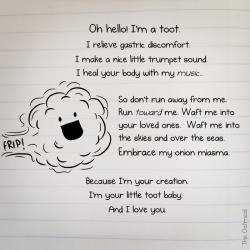 Oh hello! I'm a toot.
I relieve gastric discomfort.
I make a nice little trumpet sound.
I heal your body with my music.
So don't run away from me.
Run toward me. Waft me into
your loved ones. Waft me into
the skies and over the seas.
Embrace my onion miasma.
FRIP!
Because I'm your creation.
I'm your little toot baby.
And I love you.
The Oatmeal